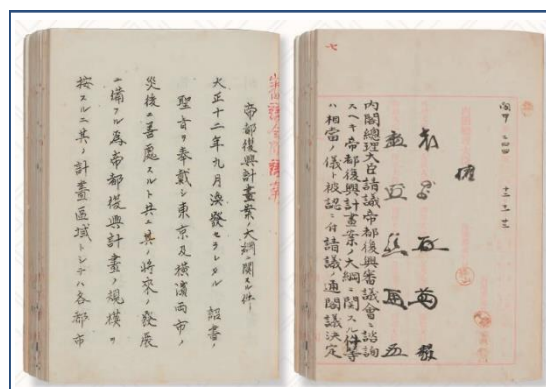 内閣總理大臣請議帝都復興審議會ニ諮詢
スヘキ帝都復興計畫案ノ大綱ニ関スル件等
ハ相當ノ儀ト被認ニ付請議ノ通閣議決定
七
帝都復興計畫案ノ大綱ニ関スル件
大正十二年九月渙發セラレタル 詔書ノ
聖旨ヲ奉戴シ東京及横濱両市ノ
災後ニ善處スルト共ニ其ノ將來ノ發展
ニ備フル為帝都復興計畫ノ規模ヲ
按スルニ其ノ計畫區域トシテハ各都市